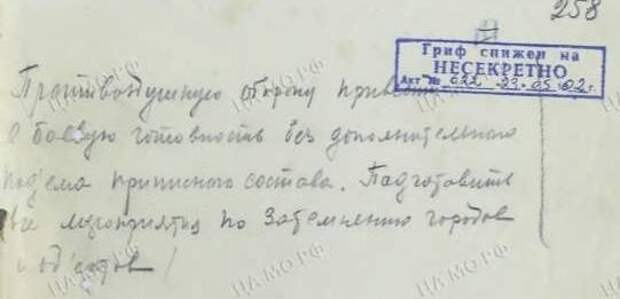 258
Гриф снижен на
НЕСЕКРЕТНО
Акт № 022 23.05.02 г.
Противоздушную оборону привести
в боевую готовность без дополнительного
под'ема приписного состава. Подготовить
все мероприятия по затемнению городов
и об'ектов!
ЦА МО РФ